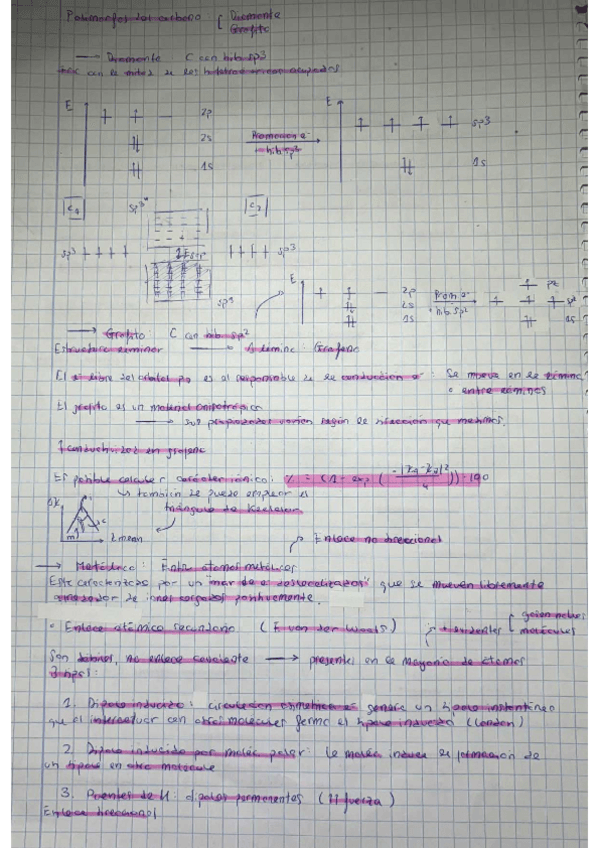 Polimorfos del carbono [ Diamante
Grafito
→ Diamante C con hib sp3
E ↿ ↿ — 2p
⥮ 2s
⥮ 1s
Promoción e-
+ hib sp3
E ↿ ↿ ↿ ↿ sp3
⥮ 1s
sp3*
sp3
sp3
sp3
E ↿ ↿ — 2p
2s
1s
Prom e-
+ hib sp2
sp2
1s
→ Grafito C con hib sp2
Estructura laminar → 1 lámina: Grafeno
El e- libre del orbital pz es el responsable de la conducción e-: Se mueve en la lámina
o entre láminas
El grafito es un material anisotrópico
→ sus propiedades varían según la dirección que medimos.
↑ conductividad en grafeno
Es posible calcular carácter iónico: % = (1 - exp ( -|Xa-Xb|² / 4 )) · 100
↳ también se puede emplear el
triángulo de Ketelaar
ΔX
m
X mean
Enlace no direccional
→ Metálico: Entre átomos metálicos
Este caracterizado por un "mar de e- deslocalizados" que se mueven libremente
alrededor de iones cargados positivamente.
• Enlace atómico secundario (F van der Waals)
+ evidentes [ gases nobles
moléculas
Son débiles, no enlace covalente → presentes en la mayoría de átomos
3 tipos:
1. Dipolo inducido: circulación asimétrica e- genera un dipolo instantáneo
que al interactuar con otras moléculas forma el dipolo inducido (London)
2. Dipolo inducido por moléc polar: la moléc induce la formación de
un dipolo en otra molécula
3. Puentes de H: dipolos permanentes (↑↑ fuerza)
Enlace direccional